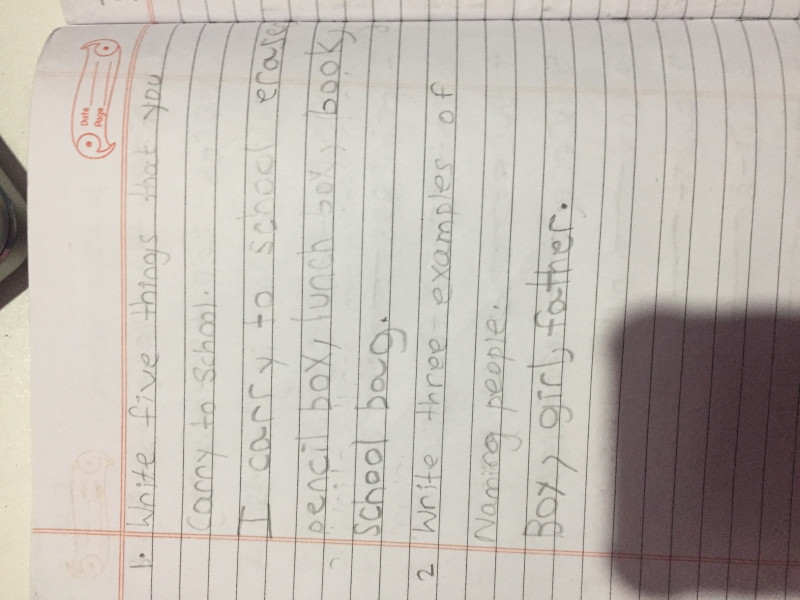 Date
Page
1. Write five things that you
Carry to School.
I carry to school erase
pencil box, lunch box, book,
School bag.
2 Write three examples of
Naming people.
Boy, girl, father.